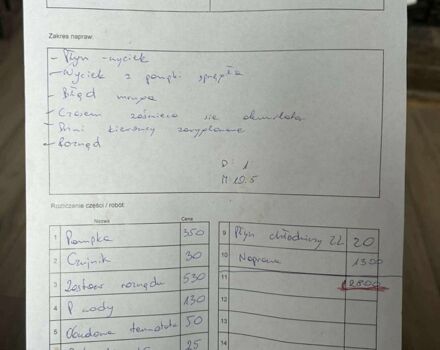 Zakres napraw:
- Płyn - wyciek
- Wyciek z pompki sprzęgła
- Błąd
- Czasem zaświeca się
- kierowcy
- Rozrząd
D: 1
M 10.5
Rozliczenie części / robót:
Nazwa Cena
1 Pompka 350
2 Czujnik 30
3 Zestaw rozrządu 530
4 P wody 130
5 Obudowa termostata 50
25
9 Płyn chłodniczy 2L 20
10 Naprawa 1300
11 12800
12
13
14